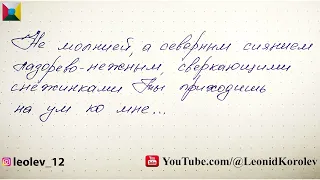 Не молнией, а северным сиянием
Лазорево-нежным, сверкающими
снежинками Ты приходишь
на ум ко мне...
leolev_12
YouTube.com/@LeonidKorolev